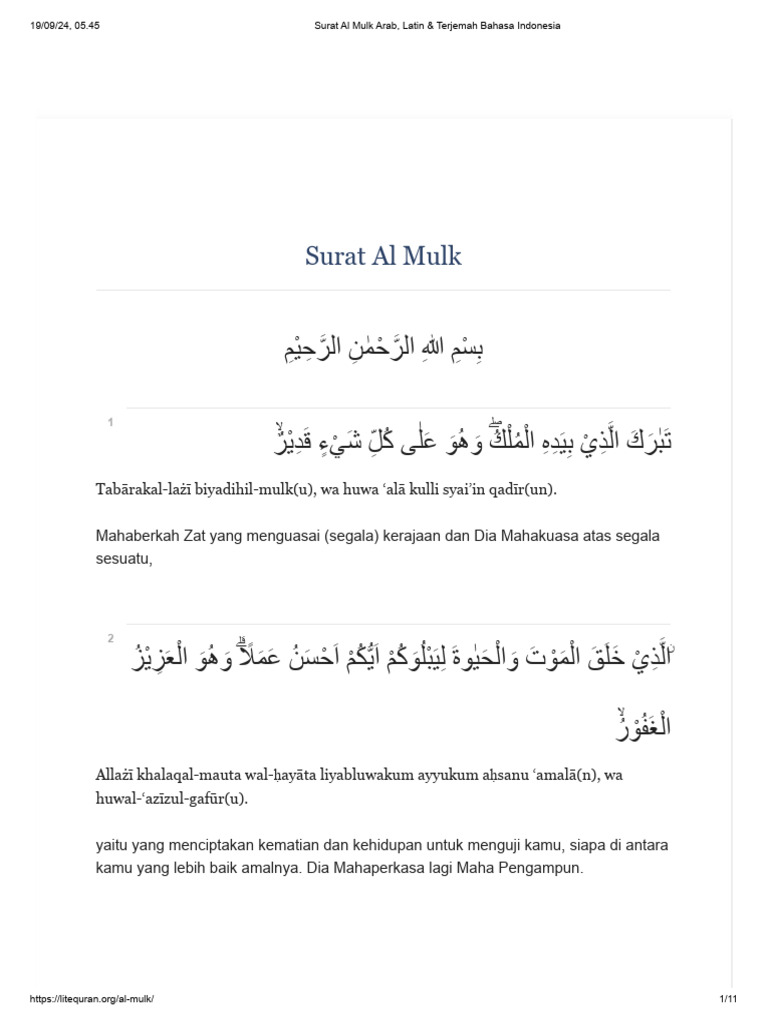 19/09/24, 05.45 Surat Al Mulk Arab, Latin & Terjemah Bahasa Indonesia
Surat Al Mulk
بِسْمِ اللّٰهِ الرَّحْمٰنِ الرَّحِيْمِ
1
تَبٰرَكَ الَّذِيْ بِيَدِهِ الْمُلْكُۖ وَهُوَ عَلٰى كُلِّ شَيْءٍ قَدِيْرٌۙ
Tabārakal-lażī biyadihil-mulk(u), wa huwa ‘alā kulli syai’in qadīr(un).
Mahaberkah Zat yang menguasai (segala) kerajaan dan Dia Mahakuasa atas segala
sesuatu,
2
ۨالَّذِيْ خَلَقَ الْمَوْتَ وَالْحَيٰوةَ لِيَبْلُوَكُمْ اَيُّكُمْ اَحْسَنُ عَمَلًاۗ وَهُوَ الْعَزِيْزُ
الْغَفُوْرُۙ
Allażī khalaqal-mauta wal-ḥayāta liyabluwakum ayyukum aḥsanu ‘amalā(n), wa
huwal-‘azīzul-gafūr(u).
yaitu yang menciptakan kematian dan kehidupan untuk menguji kamu, siapa di antara
kamu yang lebih baik amalnya. Dia Mahaperkasa lagi Maha Pengampun.
https://litequran.org/al-mulk/ 1/11